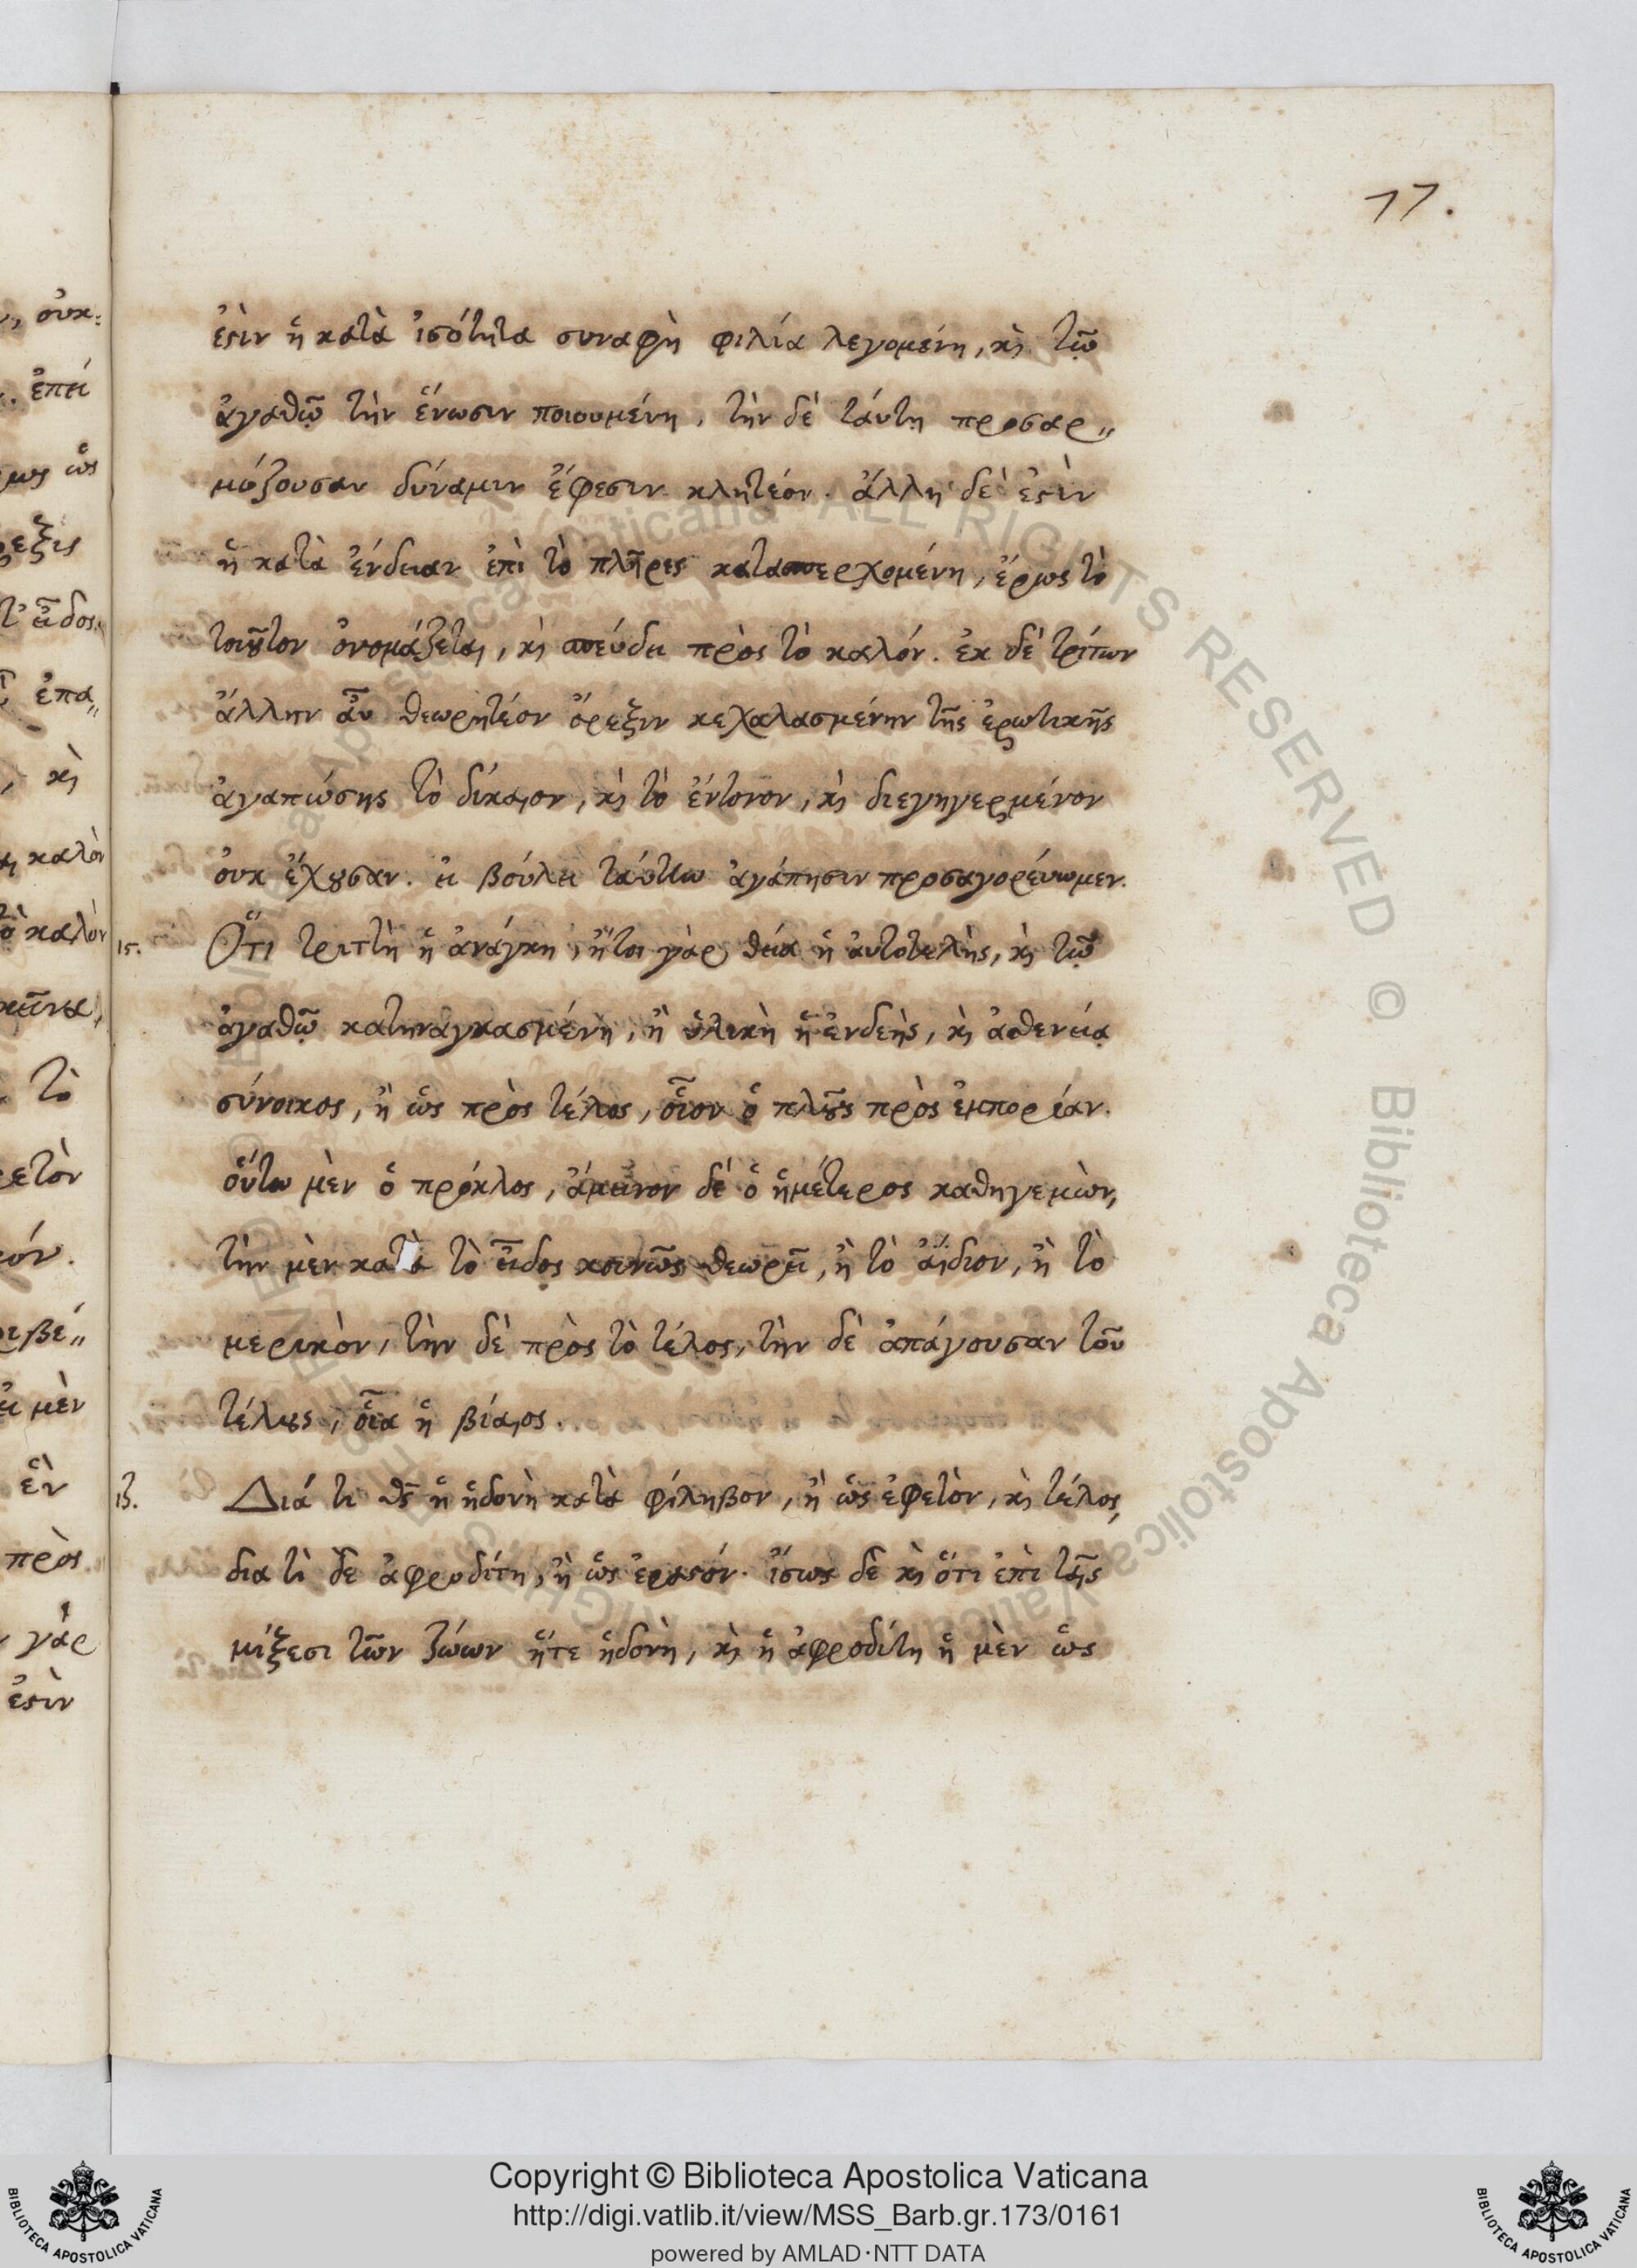 17.
ἐςὶν ἡ κατὰ ἰσότητα συναφὴ φιλία λεγομένη, κ̀ τῷ
ἀγαθῷ τὴν ἕνωσιν ποιουμένη, τὴν δὲ ταύτῃ προσαρ〃
μόζουσαν δύναμιν ἔφεσιν κλητέον. ἄλλη δὲ ἐςὶν
ἡ κατὰ ἔνδειαν ἐπὶ τὸ πλῆρες κατασπερχομένη, ἔρως τὸ
τοιȣ͂τον ὀνομάζεται, κ̀ σπεύδει πρὸς τὸ καλόν. ἐκ δὲ τρίτων
ἄλλην αὖ θεωρητέον ὄρεξιν κεχαλασμένην τῆς ἐρωτικῆς
ἀγαπώσης τὸ δίκαιον, κ̀ τὸ ἔντονον, κ̀ διεγηγερμένον
οὐκ ἔχȣσαν. εἰ βούλει ταύτην ἀγάπησιν προσαγορεύωμεν.
ις. Ὅτι τριττὴ ἡ ἀνάγκη, ἤτοι γὰρ θεία ἡ αὐτοτελὴς, κ̀ τῷ
ἀγαθῷ κατηναγκασμένη, ἢ ὑλικὴ ἡ ἐνδεὴς, κ̀ ἀσθενείᾳ
σύνοικος, ἢ ὡς πρὸς τέλος, οἷον ὁ πλȣ͂ς πρὸς ἐμπορίαν.
οὕτω μὲν ὁ πρόκλος, ἄμεινον δὲ ὁ ἡμέτερος καθηγεμὼν,
τὴν μὲν κατὰ τὸ εἶδος κοινῶς θεωρεῖ, ἢ τὸ ἀΐδιον, ἢ τὸ
μερικὸν, τὴν δὲ πρὸς τὸ τέλος, τὴν δὲ ἀπάγουσαν τοῦ
τέλȣς, οἷα ἡ βίαιος.
ιζ. Διά τι θς̄ ἡ ἡδονὴ κατὰ φίληβον, ἢ ὡς ἐφετὸν, κ̀ τέλος,
διατὶ δὲ ἀφροδίτη, ἢ ὡς ἐραςόν. ἴσως δὲ κ̀ ὅτι ἐπὶ ταῖς
μίξεσι τῶν ζώων ἥτε ἡδονὴ, κ̀ ἡ ἀφροδίτη ἡ μὲν ὡς
Copyright © Biblioteca Apostolica Vaticana
http://digi.vatlib.it/view/MSS_Barb.gr.173/0161
powered by AMLAD·NTT DATA